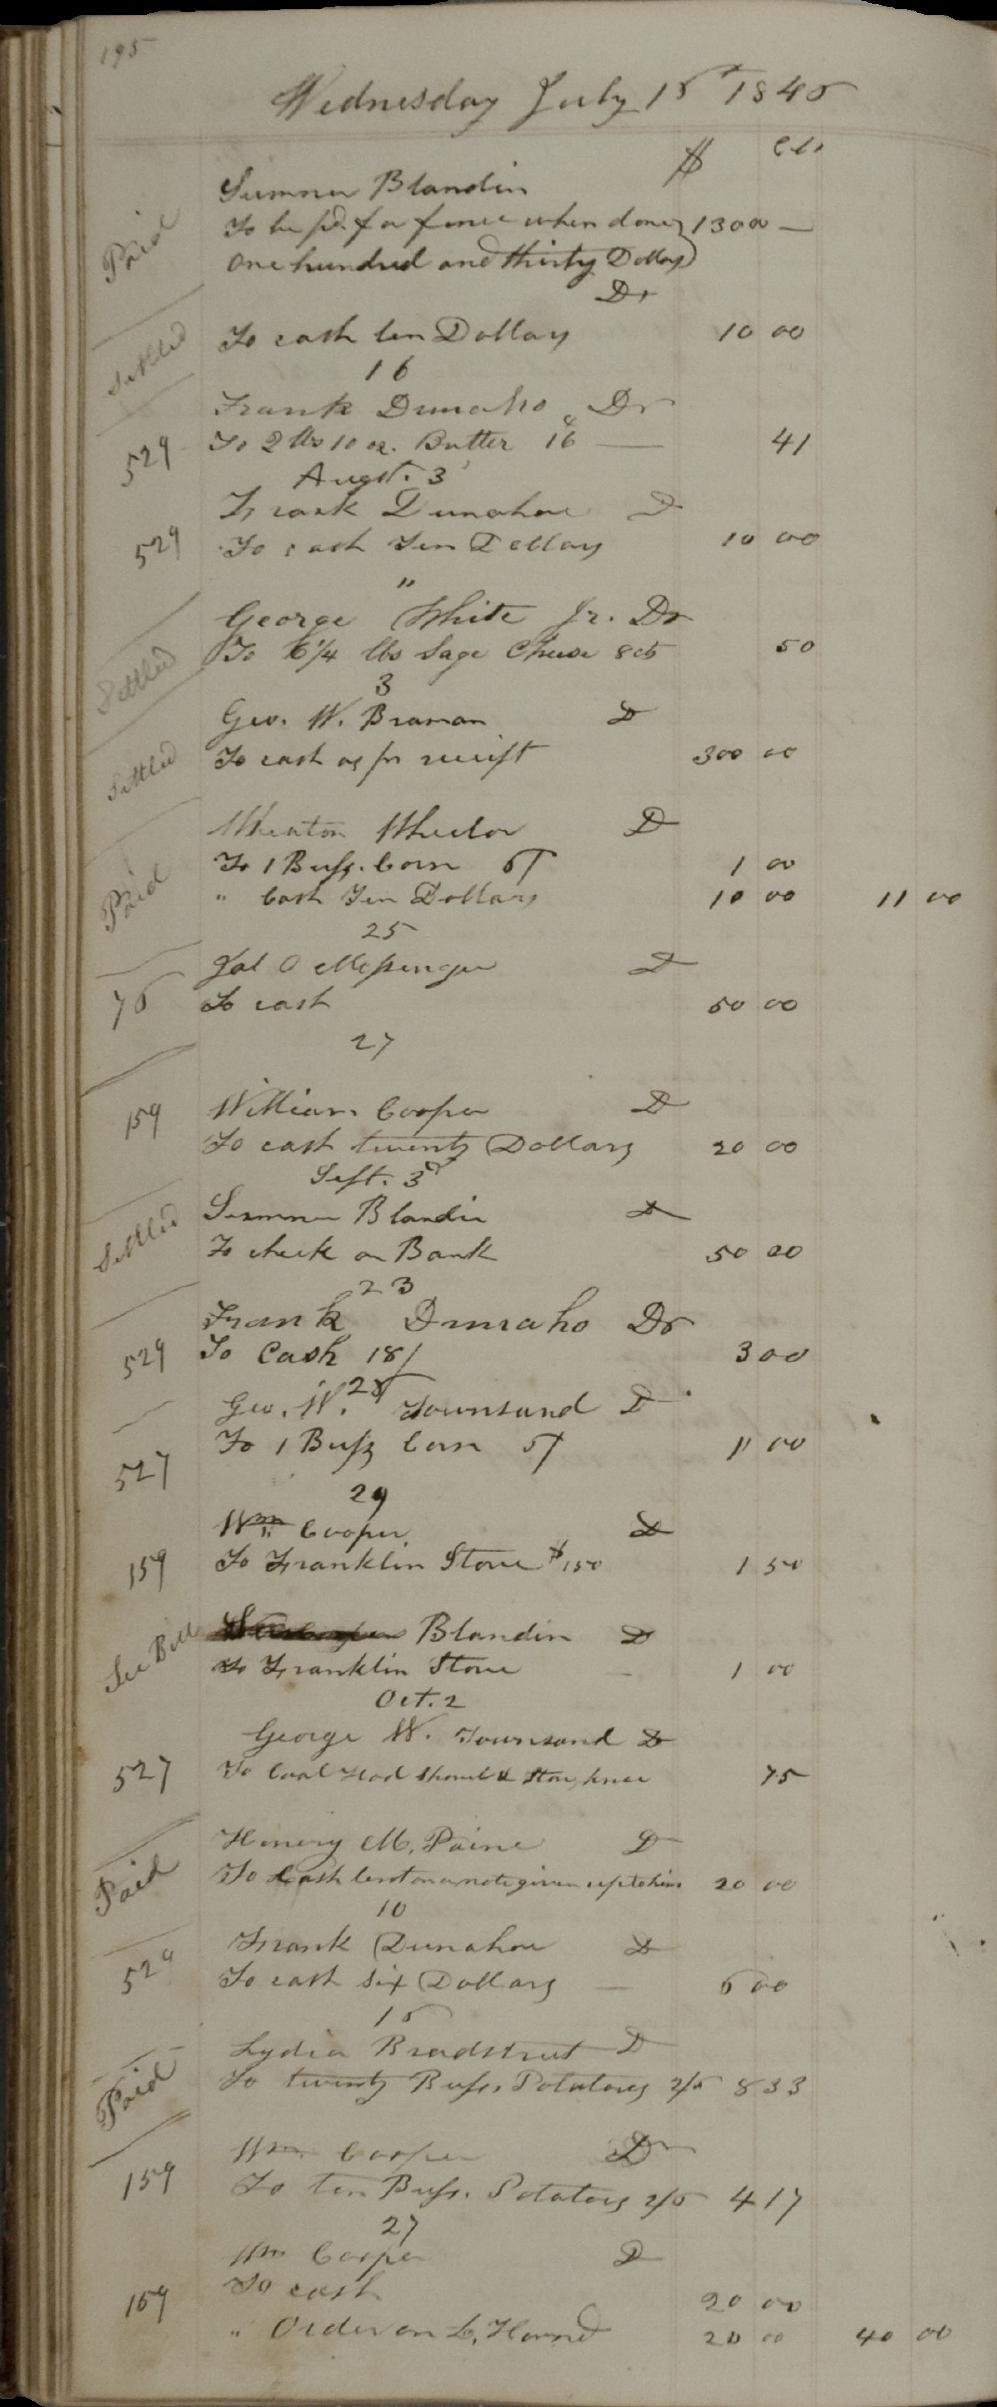 195
Wednesday July 15 1845
$ cts
Sumner Blandin
Paid To be pd. for fence when done 130 00 —
one hundred and thirty Dollars
Dr
Settled To cash ten Dollars 10 00
16
Frank Dunaho Dr
529 To 2 lbs 10 oz. Butter 16 — 41
Augst. 3
Frank Dunahoe D
529 To cash Ten Dollars 10 00
"
George White Jr. Dr
Settled To 6 1/4 lbs Sage Cheese 8 cts 50
3
Geo. W. Braman D
Settled To cash as pr receipt 300 00
Wheaton Wheelor D
To 1 Bush. Corn 6/ 1 00
Paid " Cash Ten Dollars 10 00 11 00
25
Messenger D
75 To cash 50 00
27
159 William Cooper D
To cash twenty Dollars 20 00
Sept. 3d
Settled Sumner Blandin D
To check on Bank 50 00
23
Frank Dunaho Dr
529 To Cash 18/ 3 00
25
Geo. W. Townsand D
527 To 1 Bush Corn 6/ 1 00
29
Wm. Cooper D
159 To Franklin Stove $1.50 1 50
See Bill Blandin D
To Franklin Stove — 1 00
Oct. 2
George W. Townsand D
527 To Coal Hod Shovel & Stove, knee 75
Henery M. Paine D
Paid To Cash lent on a note given up to him 20 00
10
Frank Dunahoe D
529 To cash six Dollars — 6 00
15
Lydia Bradstreet D
Paid To twenty Bush. Potatoes 2/5 8 33
Wm. Cooper Dr
159 To ten Bush. Potatoes 2/5 4 17
27
Wm Cooper D
159 To cash 20 00
" Order on L. 20 00 40 00